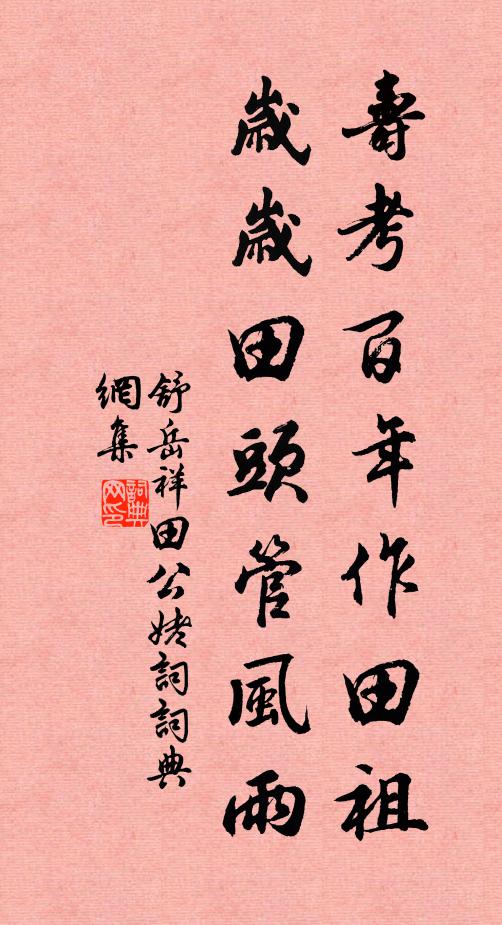 壽考百年作田祖
歲歲田頭管風雨
舒岳祥田公姥詞詞典
網集
詞典網印